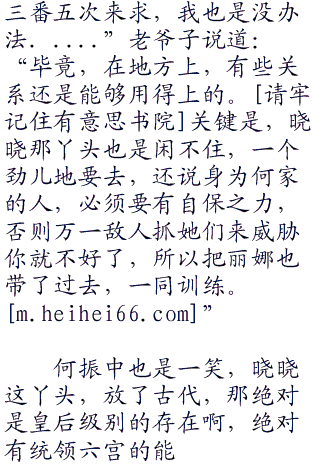 三番五次来求，我也是没办
法．．．．．．”老爷子说道：
“毕竟，在地方上，有些关
系还是能够用得上的。[请牢
记住有意思书院]关键是，晓
晓那丫头也是闲不住，一个
劲儿地要去，还说身为何家
的人，必须要有自保之力，
否则万一敌人抓她们来威胁
你就不好了，所以把丽娜也
带了过去，一同训练。
[m.heihei66.com]”
何振中也是一笑，晓晓
这丫头，放了古代，那绝对
是皇后级别的存在啊，绝对
有统领六宫的能